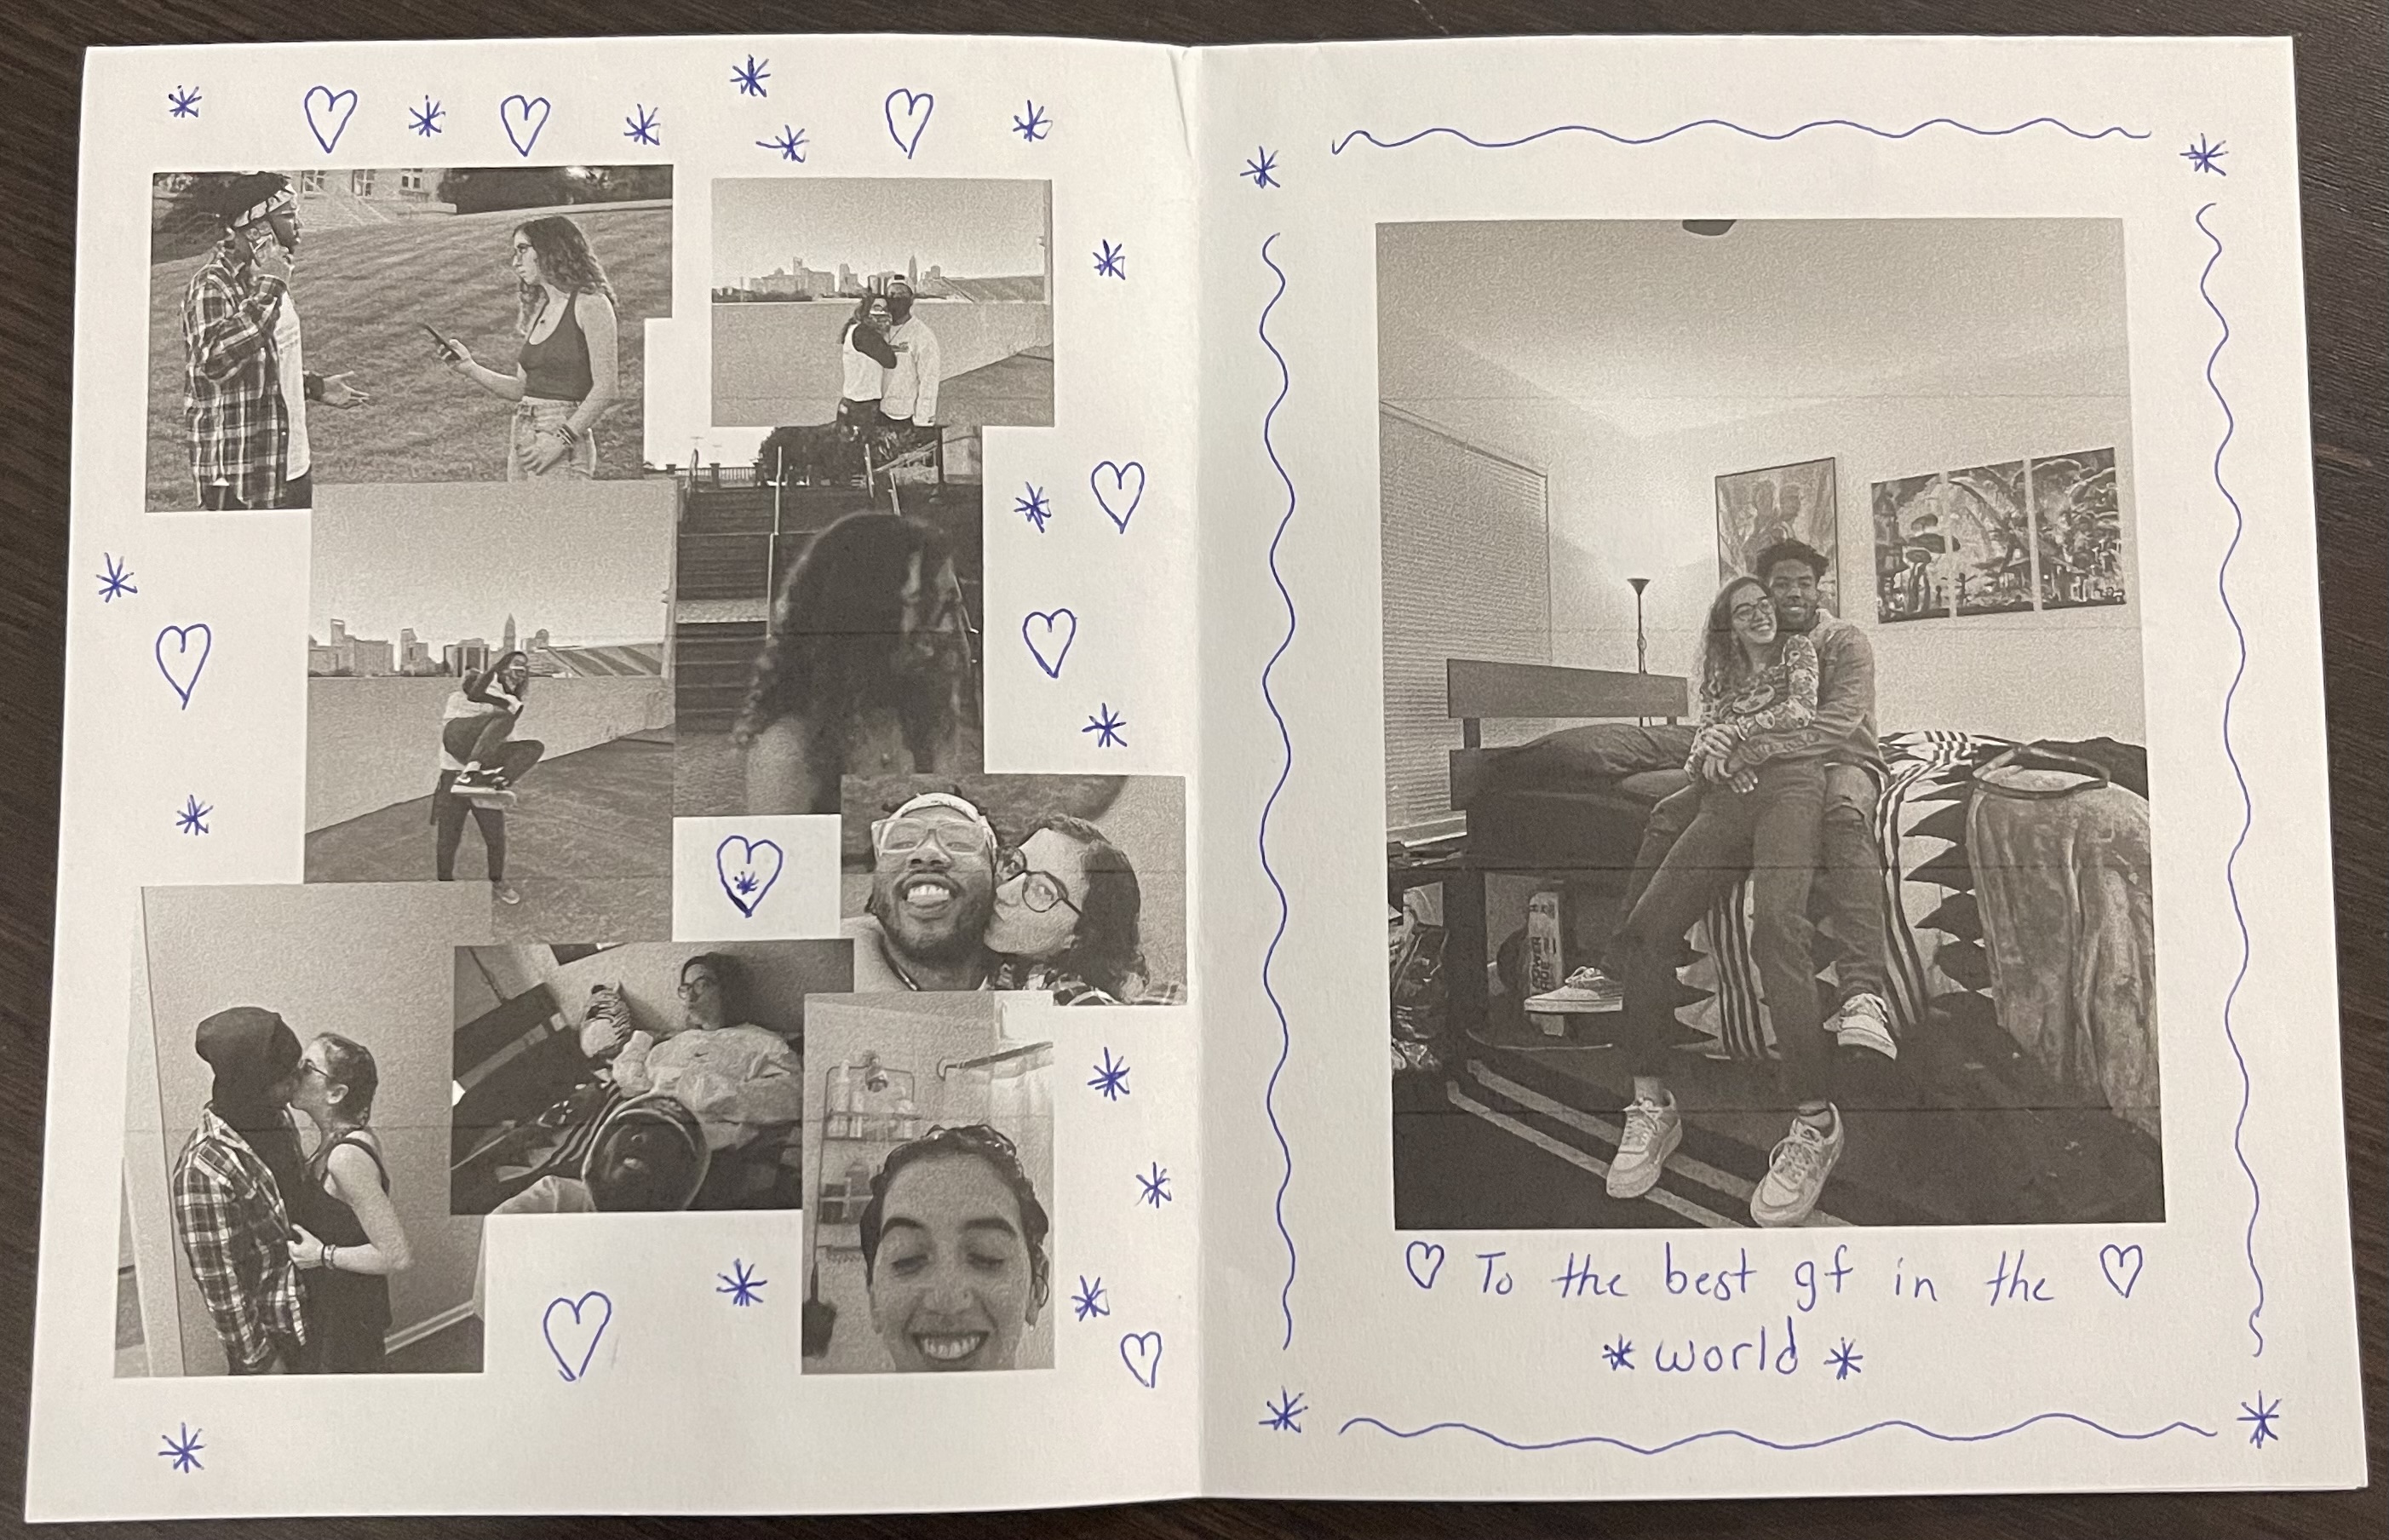 To the best gf in the
world